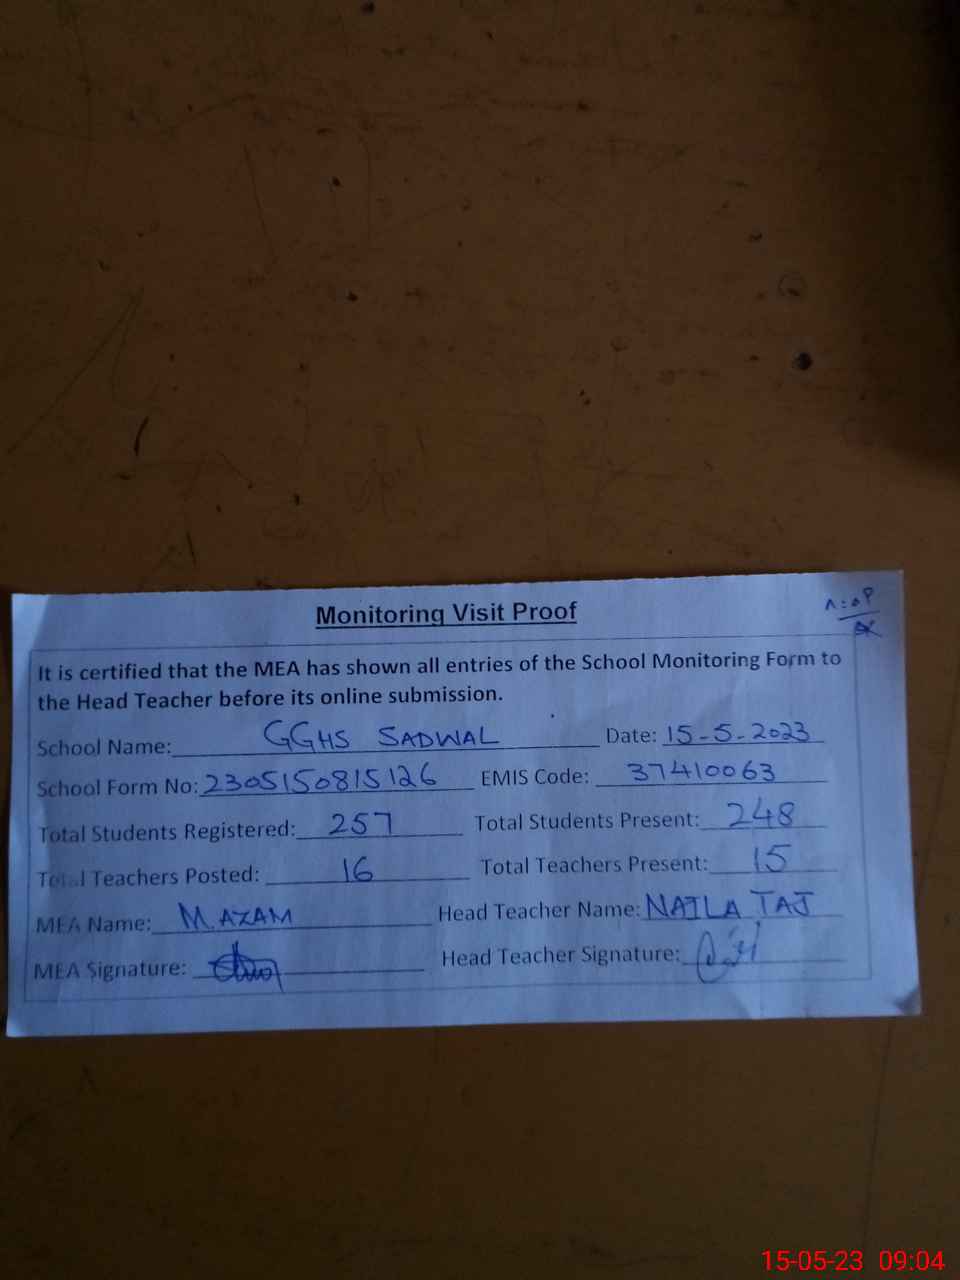 Monitoring Visit Proof
It is certified that the MEA has shown all entries of the School Monitoring Form to
the Head Teacher before its online submission.
School Name: GGHS SADWAL Date: 15-5-2023
School Form No: 2305150815126 EMIS Code: 37410063
Total Students Registered: 257 Total Students Present: 248
Total Teachers Posted: 16 Total Teachers Present: 15
MEA Name: M. AZAM Head Teacher Name: NAILA TAJ
MEA Signature: Head Teacher Signature:
15-05-23 09:04